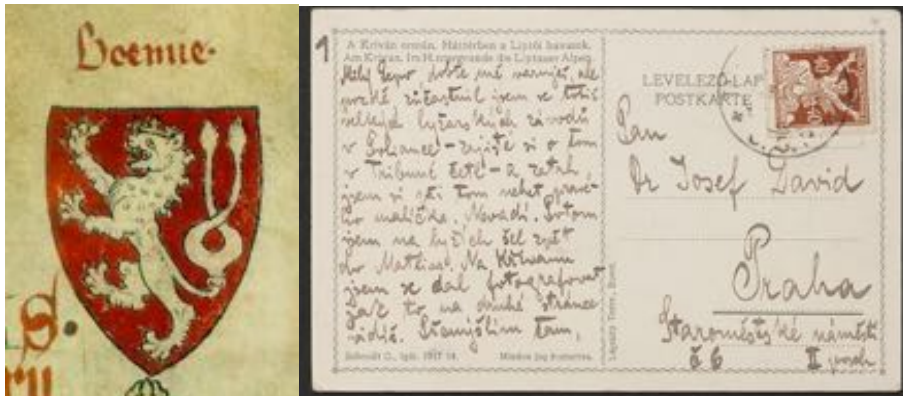 Boemie.
1
A Kriván ormán. Háttérben a Liptói havasok.
Am Kriván. Im Hintergrunde die Liptauer Alpen.
Milý Pepo dobře mě varuješ, ale
pozdě zúčastnil jsem se totiž
velkých lyžařských závodů
v Poliance – zajisté si o tom
v Tribuně četl – a zatrh
jsem si při tom nehet pravé-
ho malíčka. Nevadí. Potom
jsem na lyžích šel zpět
do Matliar. Na Křivani
jsem se dal fotografovat
jak to na druhé stránce
vidíš. Přemýšlím tam,
LEVELEZŐ-LAP
POSTKARTE
Pan
Dr Josef David
Praha
Staroměstské náměstí
č 6 II posch